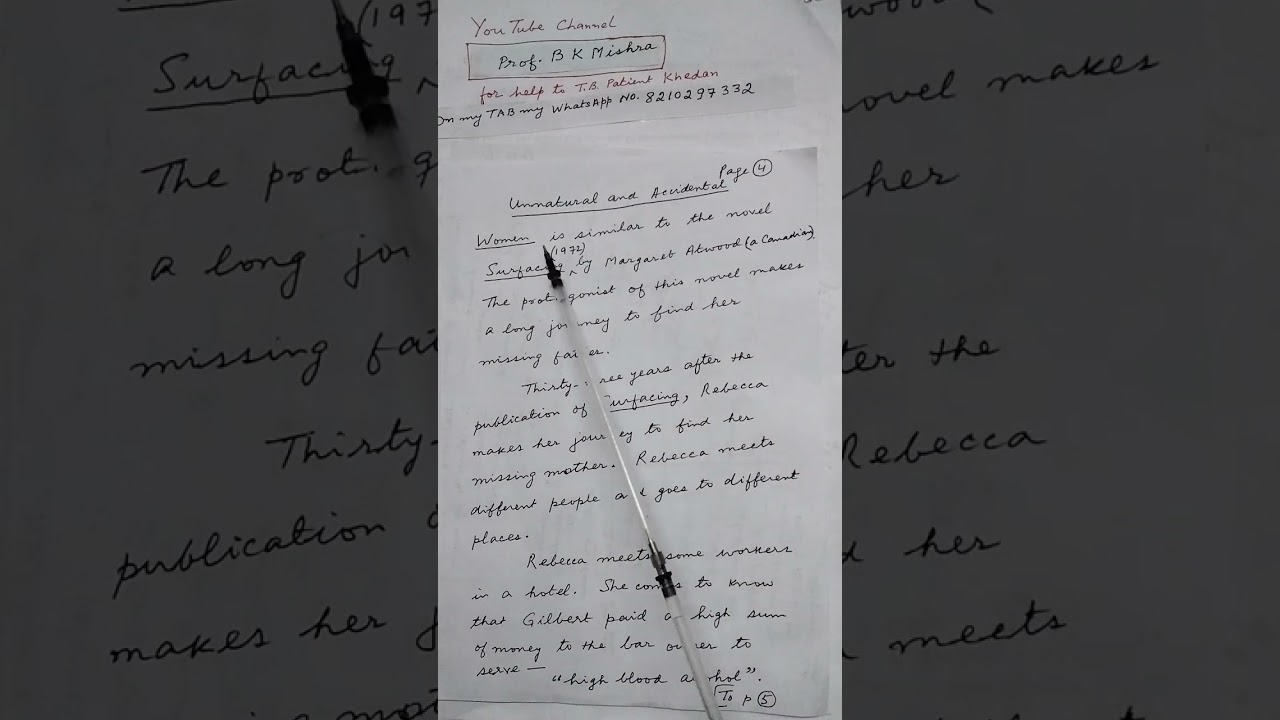 YouTube Channel
Prof. B K Mishra
for help to T.B. Patient Khedan
On my TAB my WhatsApp No. 8210297332
Page 4
Unnatural and Accidental
Women is similar to the novel
(1972)
Surfacing by Margaret Atwood (a Canadian).
The protagonist of this novel makes
a long journey to find her
missing father.
Thirty-three years after the
publication of Surfacing, Rebecca
makes her journey to find her
missing mother. Rebecca meets
different people and goes to different
places.
Rebecca meets some workers
in a hotel. She comes to know
that Gilbert paid a high sum
of money to the bar owner to
serve —
"high blood alcohol".
To p 5